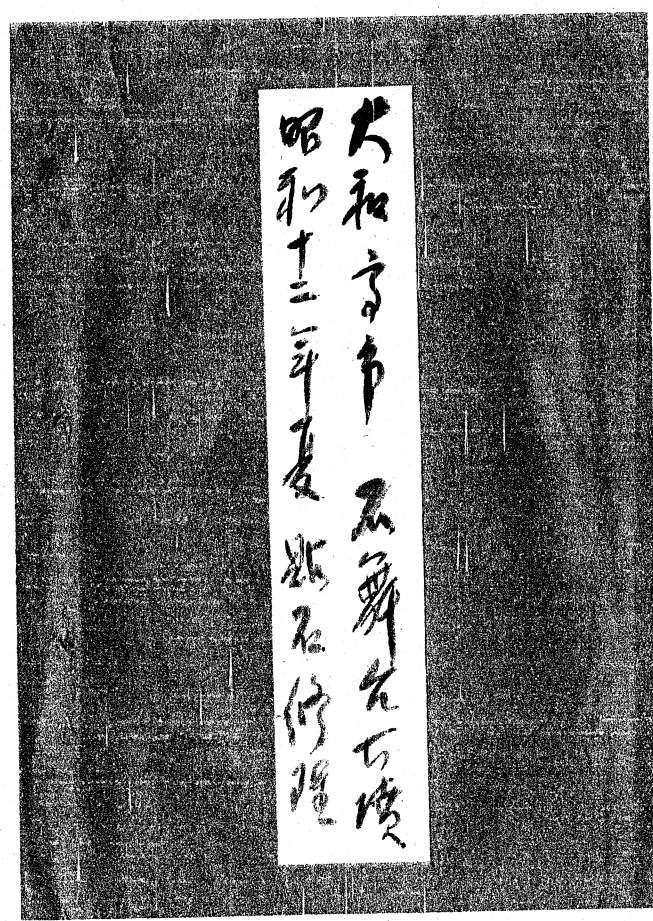 大和高市 石舞台古墳
昭和十二年夏 貼石修理